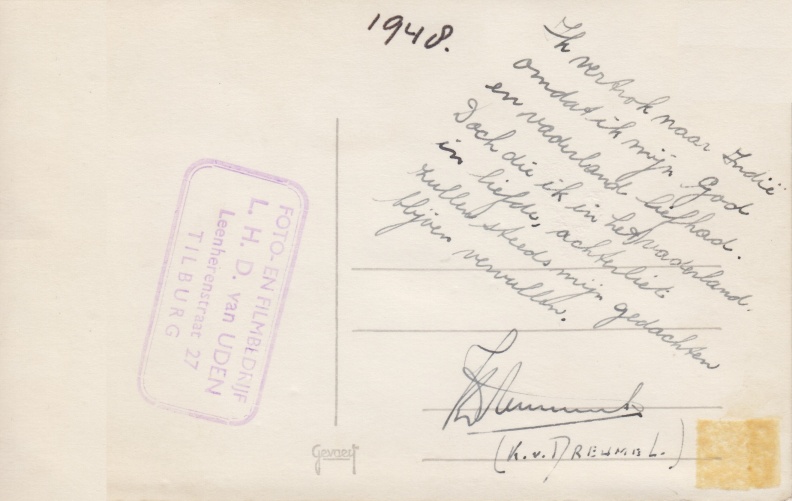 1948.
Ik vertrok naar Indië
omdat ik mijn God
en vaderland liefhad.
Doch die ik in het vaderland.
in liefde, achterliet
zullen steeds mijn gedachten
blijven vervullen.
(K. v. DREUMEL.)
FOTO- EN FILMBEDRIJF
L. H. D. van UDEN
Leenherenstraat 27
TILBURG
Gevaert